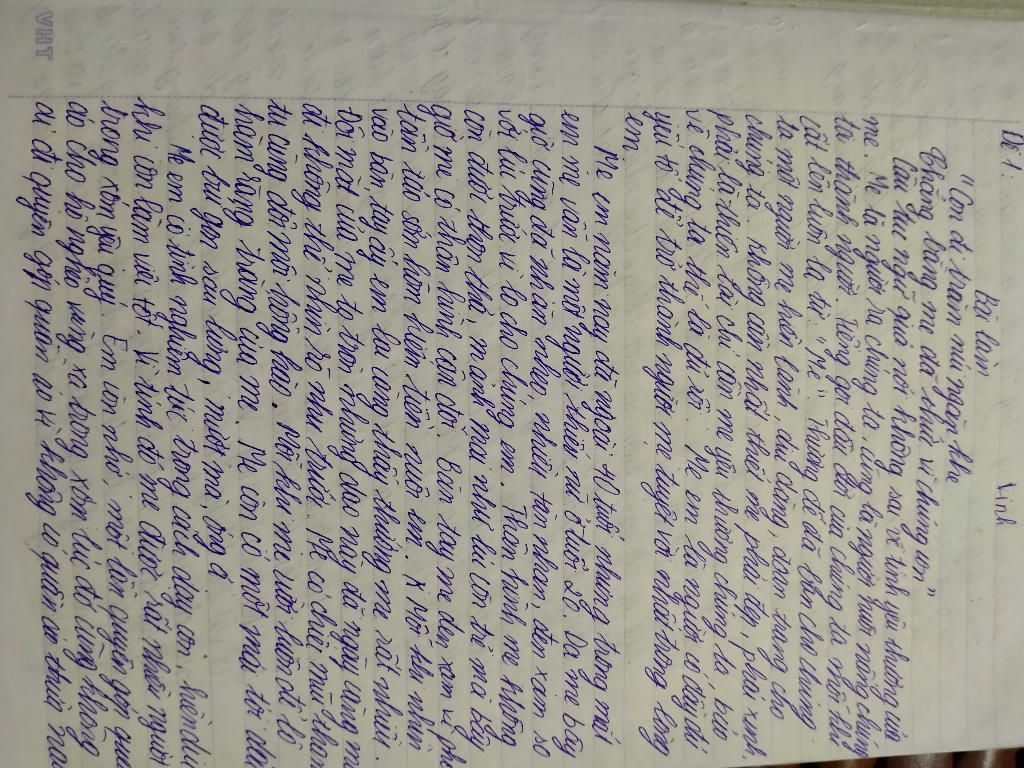 VHT
Linh
Đề 1:
Bài làm
"Con đi trăm núi ngàn khe
Chẳng bằng mẹ đã khuổ vì chúng con"
Câu thơ ngữ qua nói không xa về tình yêu thương của
mẹ. Mẹ là người sa chúng ta, cũng là người nuôi nấng chúng
ta thành người. Tiếng gọi đầu đời của chúng ta khi
cất lên luôn là từ: "Mẹ". Thượng đế đã ban cho chúng
ta một người mẹ hiền lành, dịu dàng, đoan trang cho
chúng ta. Không cần nhất thiết mẹ phải đẹp, phải xinh,
phải là thiên tài chỉ cần mẹ yêu thương chúng ta, bảo
vệ chúng ta thế là đủ rồi. Mẹ em là người có đầy đủ
yếu tố để trở thành người mẹ tuyệt vời nhất trong lòng
em.
Mẹ em năm nay đã ngoài 40 tuổi nhưng trong mắt
em mẹ vẫn là một người thiếu nữ ở tuổi 20. Da mẹ bây
giờ cũng đã nhăn nheo, nhiều tàn nhan, đen xạm so
với lúc trước vì lo cho chúng em. Thân hình mẹ không
còn được thon thả, mảnh mai như lúc còn trẻ mà bây
giờ mẹ có thân hình cân đối. Bàn tay mẹ đen xạm vì phải
tần tảo sớm hôm kiếm tiền nuôi em. Mỗi khi nhìn
vào bàn tay ấy em lại càng thấy thương mẹ rất nhiều.
Đôi mắt của mẹ to tròn nhưng dạo này đã ngày càng mờ
đi không thể nhìn rõ như trước. Mẹ có chiếc mũi thon
tú cùng đôi môi hồng hào. Mỗi khi mẹ cười luôn để lộ
hàm răng trắng của mẹ. Mẹ còn có một mái tóc dài
được búi gọn sau lưng, mượt mà, óng ả.
Mẹ em có tính nghiêm túc trong cách dạy con, hiền dịu
khi còn làm việc tốt. Vì tính đó mẹ được rất nhiều người
trong xóm yêu quý. Em còn nhớ, một lần quyên góp quần
áo cho hộ nghèo vùng xa trong xóm lúc đó cũng không
ai đi quyên góp quần áo vì không có quần áo thừa mà